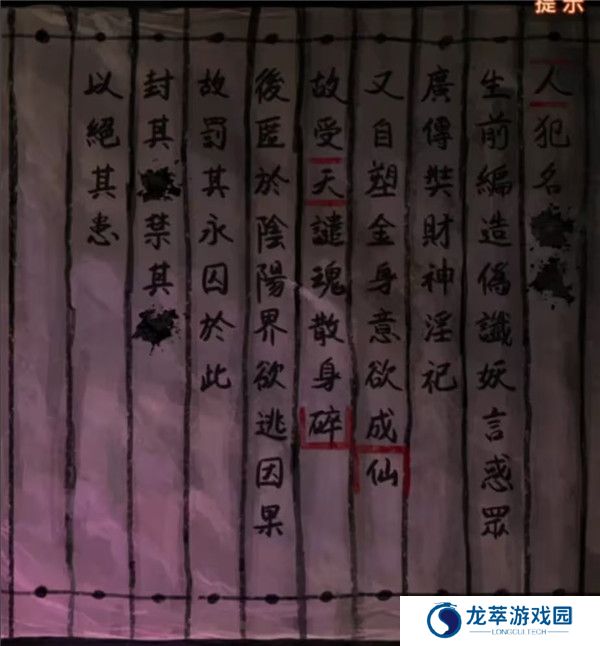 提示
人犯名
生前編造偽讖妖言惑眾
廣傳奘財神淫祀
又自塑金身意欲成仙
故受天譴魂散身碎
後匿於陰陽界欲逃因果
故罰其永囚於此
封其禁其
以絕其患
龙萃游戏园
LONGCUITECH